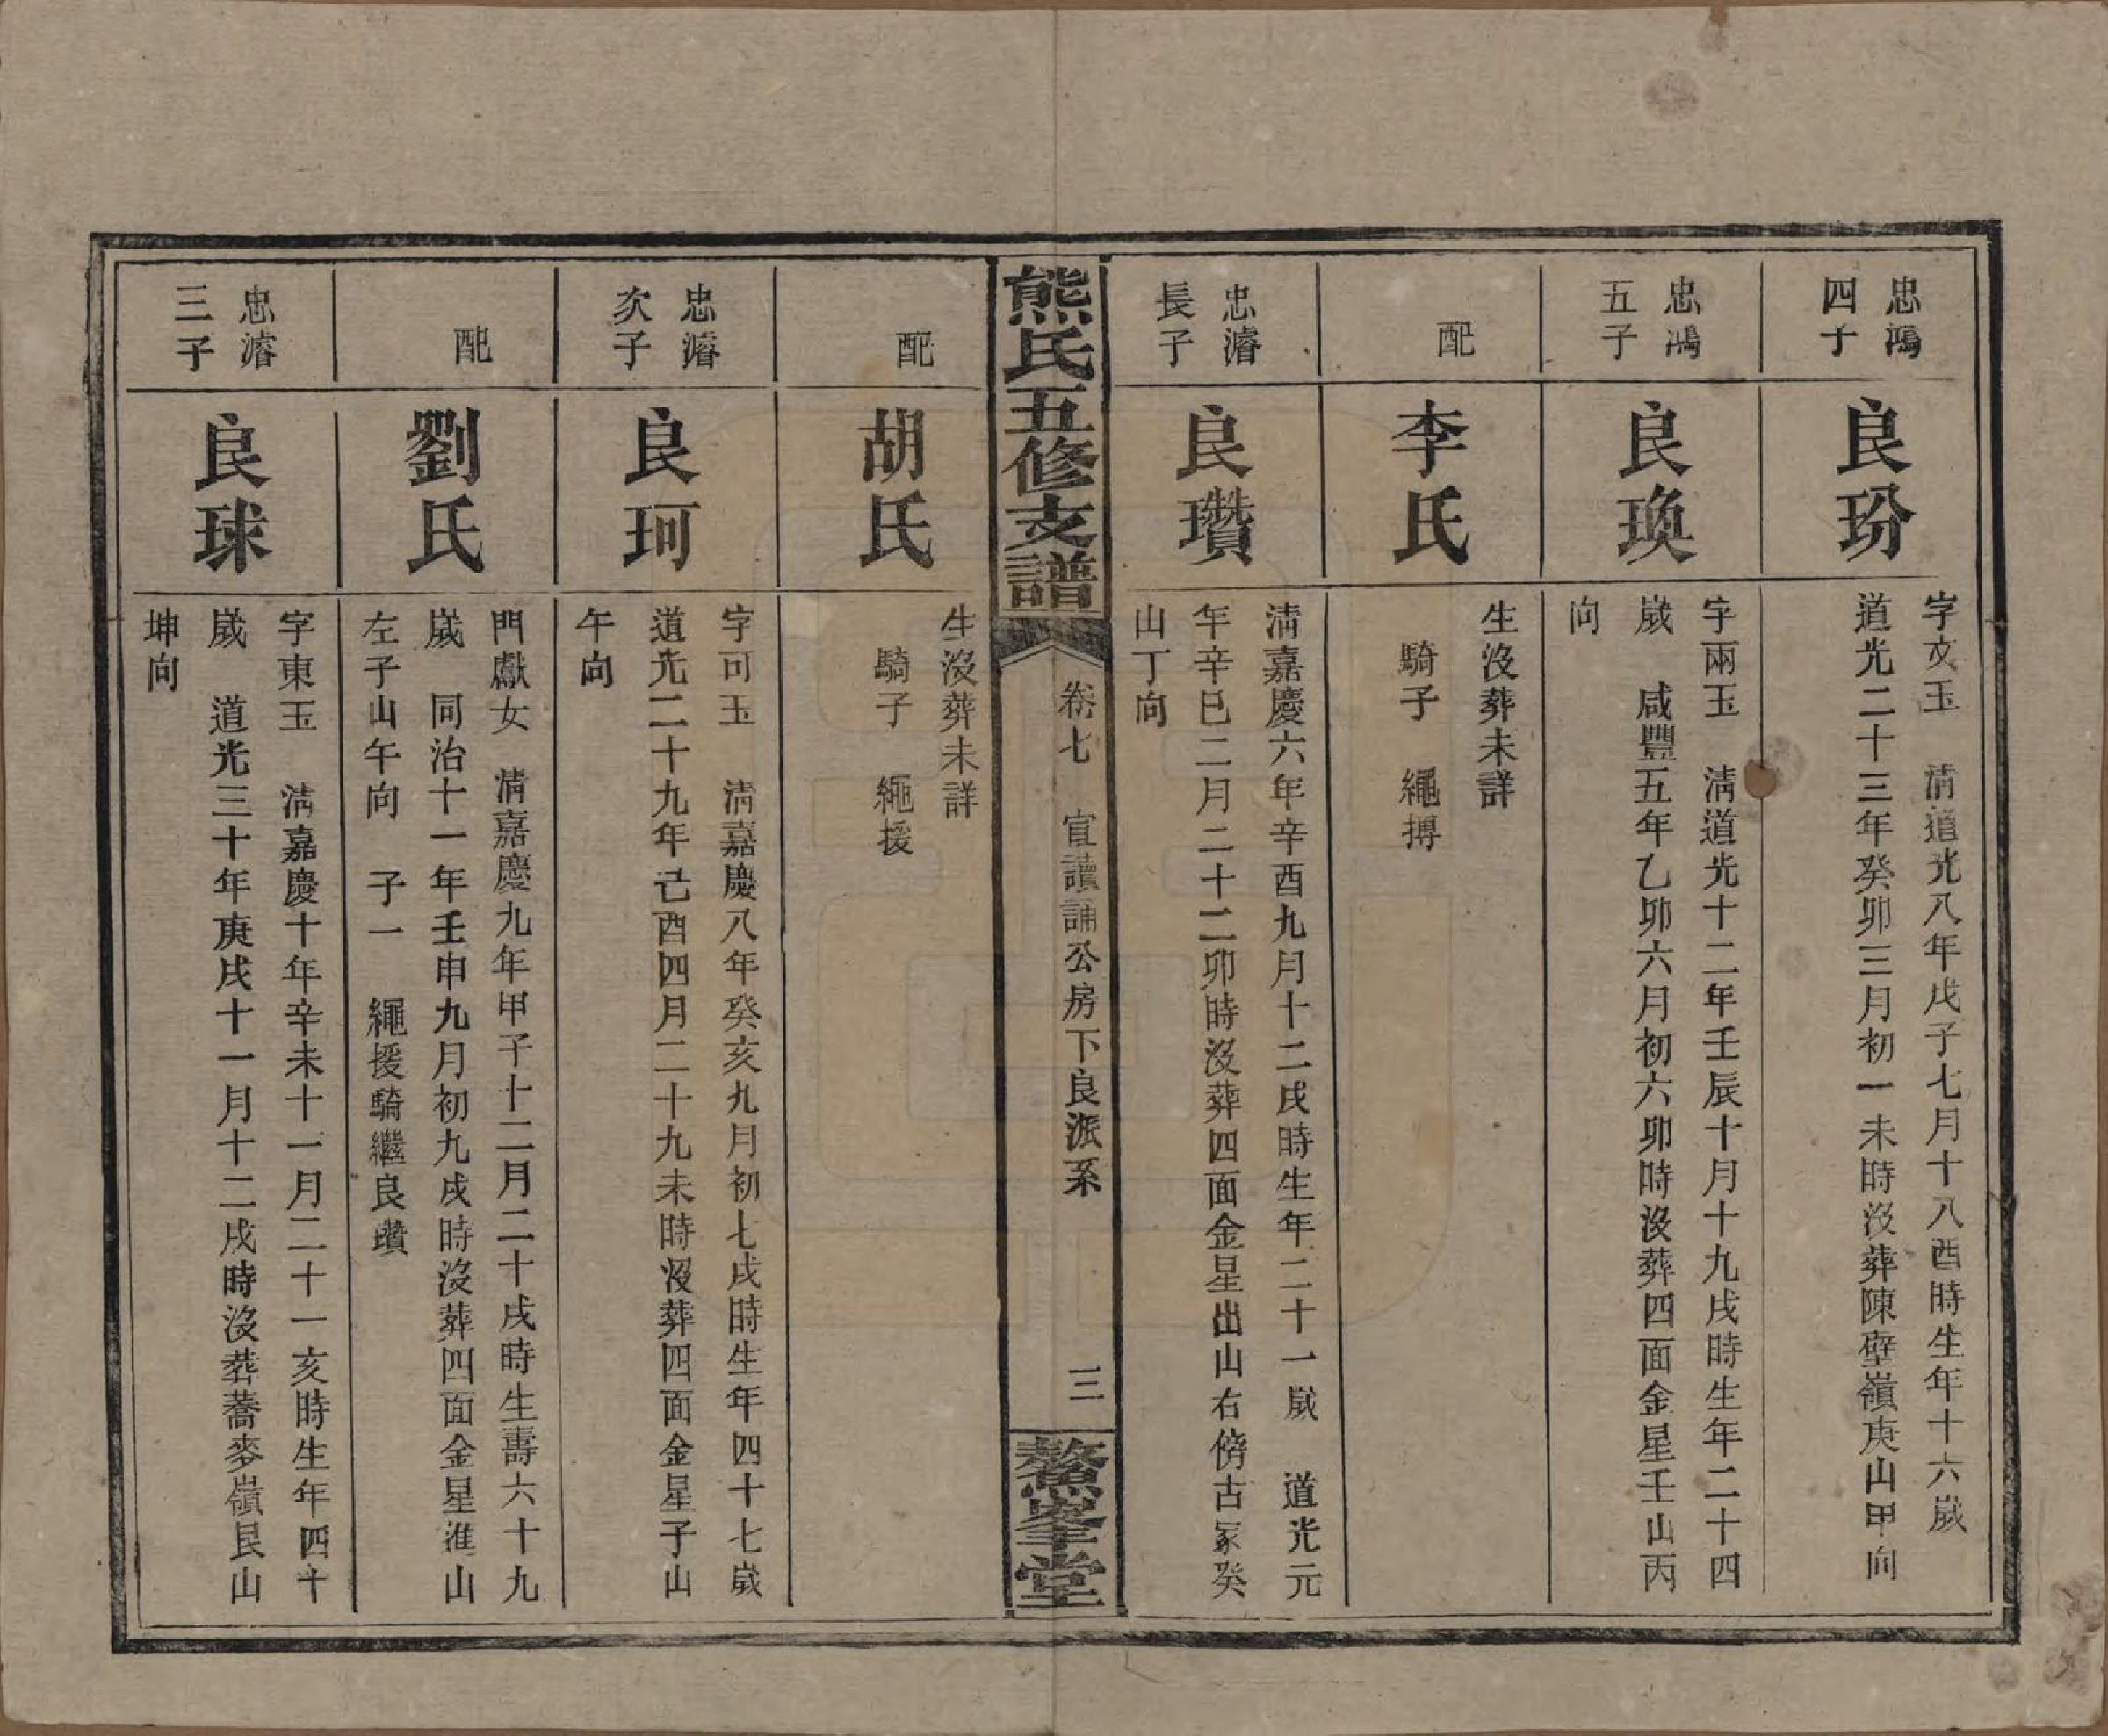 忠鴻
四子
良玢
字文玉　清道光八年戊子七月十八酉時生年十六歲
道光二十三年癸卯三月初一未時沒葬陳壁嶺庚山甲向
忠鴻
五子
良瑍
字兩玉　淸道光十二年壬辰十月十九戌時生年二十四
歲　咸豐五年乙卯六月初六卯時沒葬四面金星壬山丙
向
配
李氏
生沒葬未詳
騎子　繩摶
忠濬
長子
良瓚
淸嘉慶六年辛酉九月十二戌時生年二十一歲　道光元
年辛巳二月二十二卯時沒葬四面金星出山右傍古冢癸
山丁向
熊氏五修支譜
卷七　宣讀誦公房下良派系
三
鰲峯堂
配
胡氏
生沒葬未詳
騎子　繩援
忠濬
次子
良珂
字可玉　淸嘉慶八年癸亥九月初七戌時生年四十七歲
道光二十九年己酉四月二十九未時沒葬四面金星子山
午向
配
劉氏
門獻女　淸嘉慶九年甲子十二月二十戌時生壽六十九
歲　同治十一年壬申九月初九戌時沒葬四面金星進山
左子山午向　子一　繩援騎繼良瓚
忠濬
三子
良球
字東玉　淸嘉慶十年辛未十一月二十一亥時生年四十
歲　道光三十年庚戌十一月十二戌時沒葬蕎麥嶺艮山
坤向